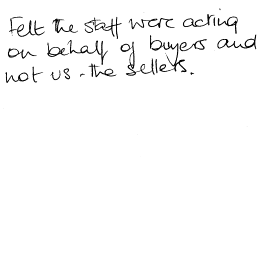 Felt the staff were acting
on behalf of buyers and
not us - the sellers.